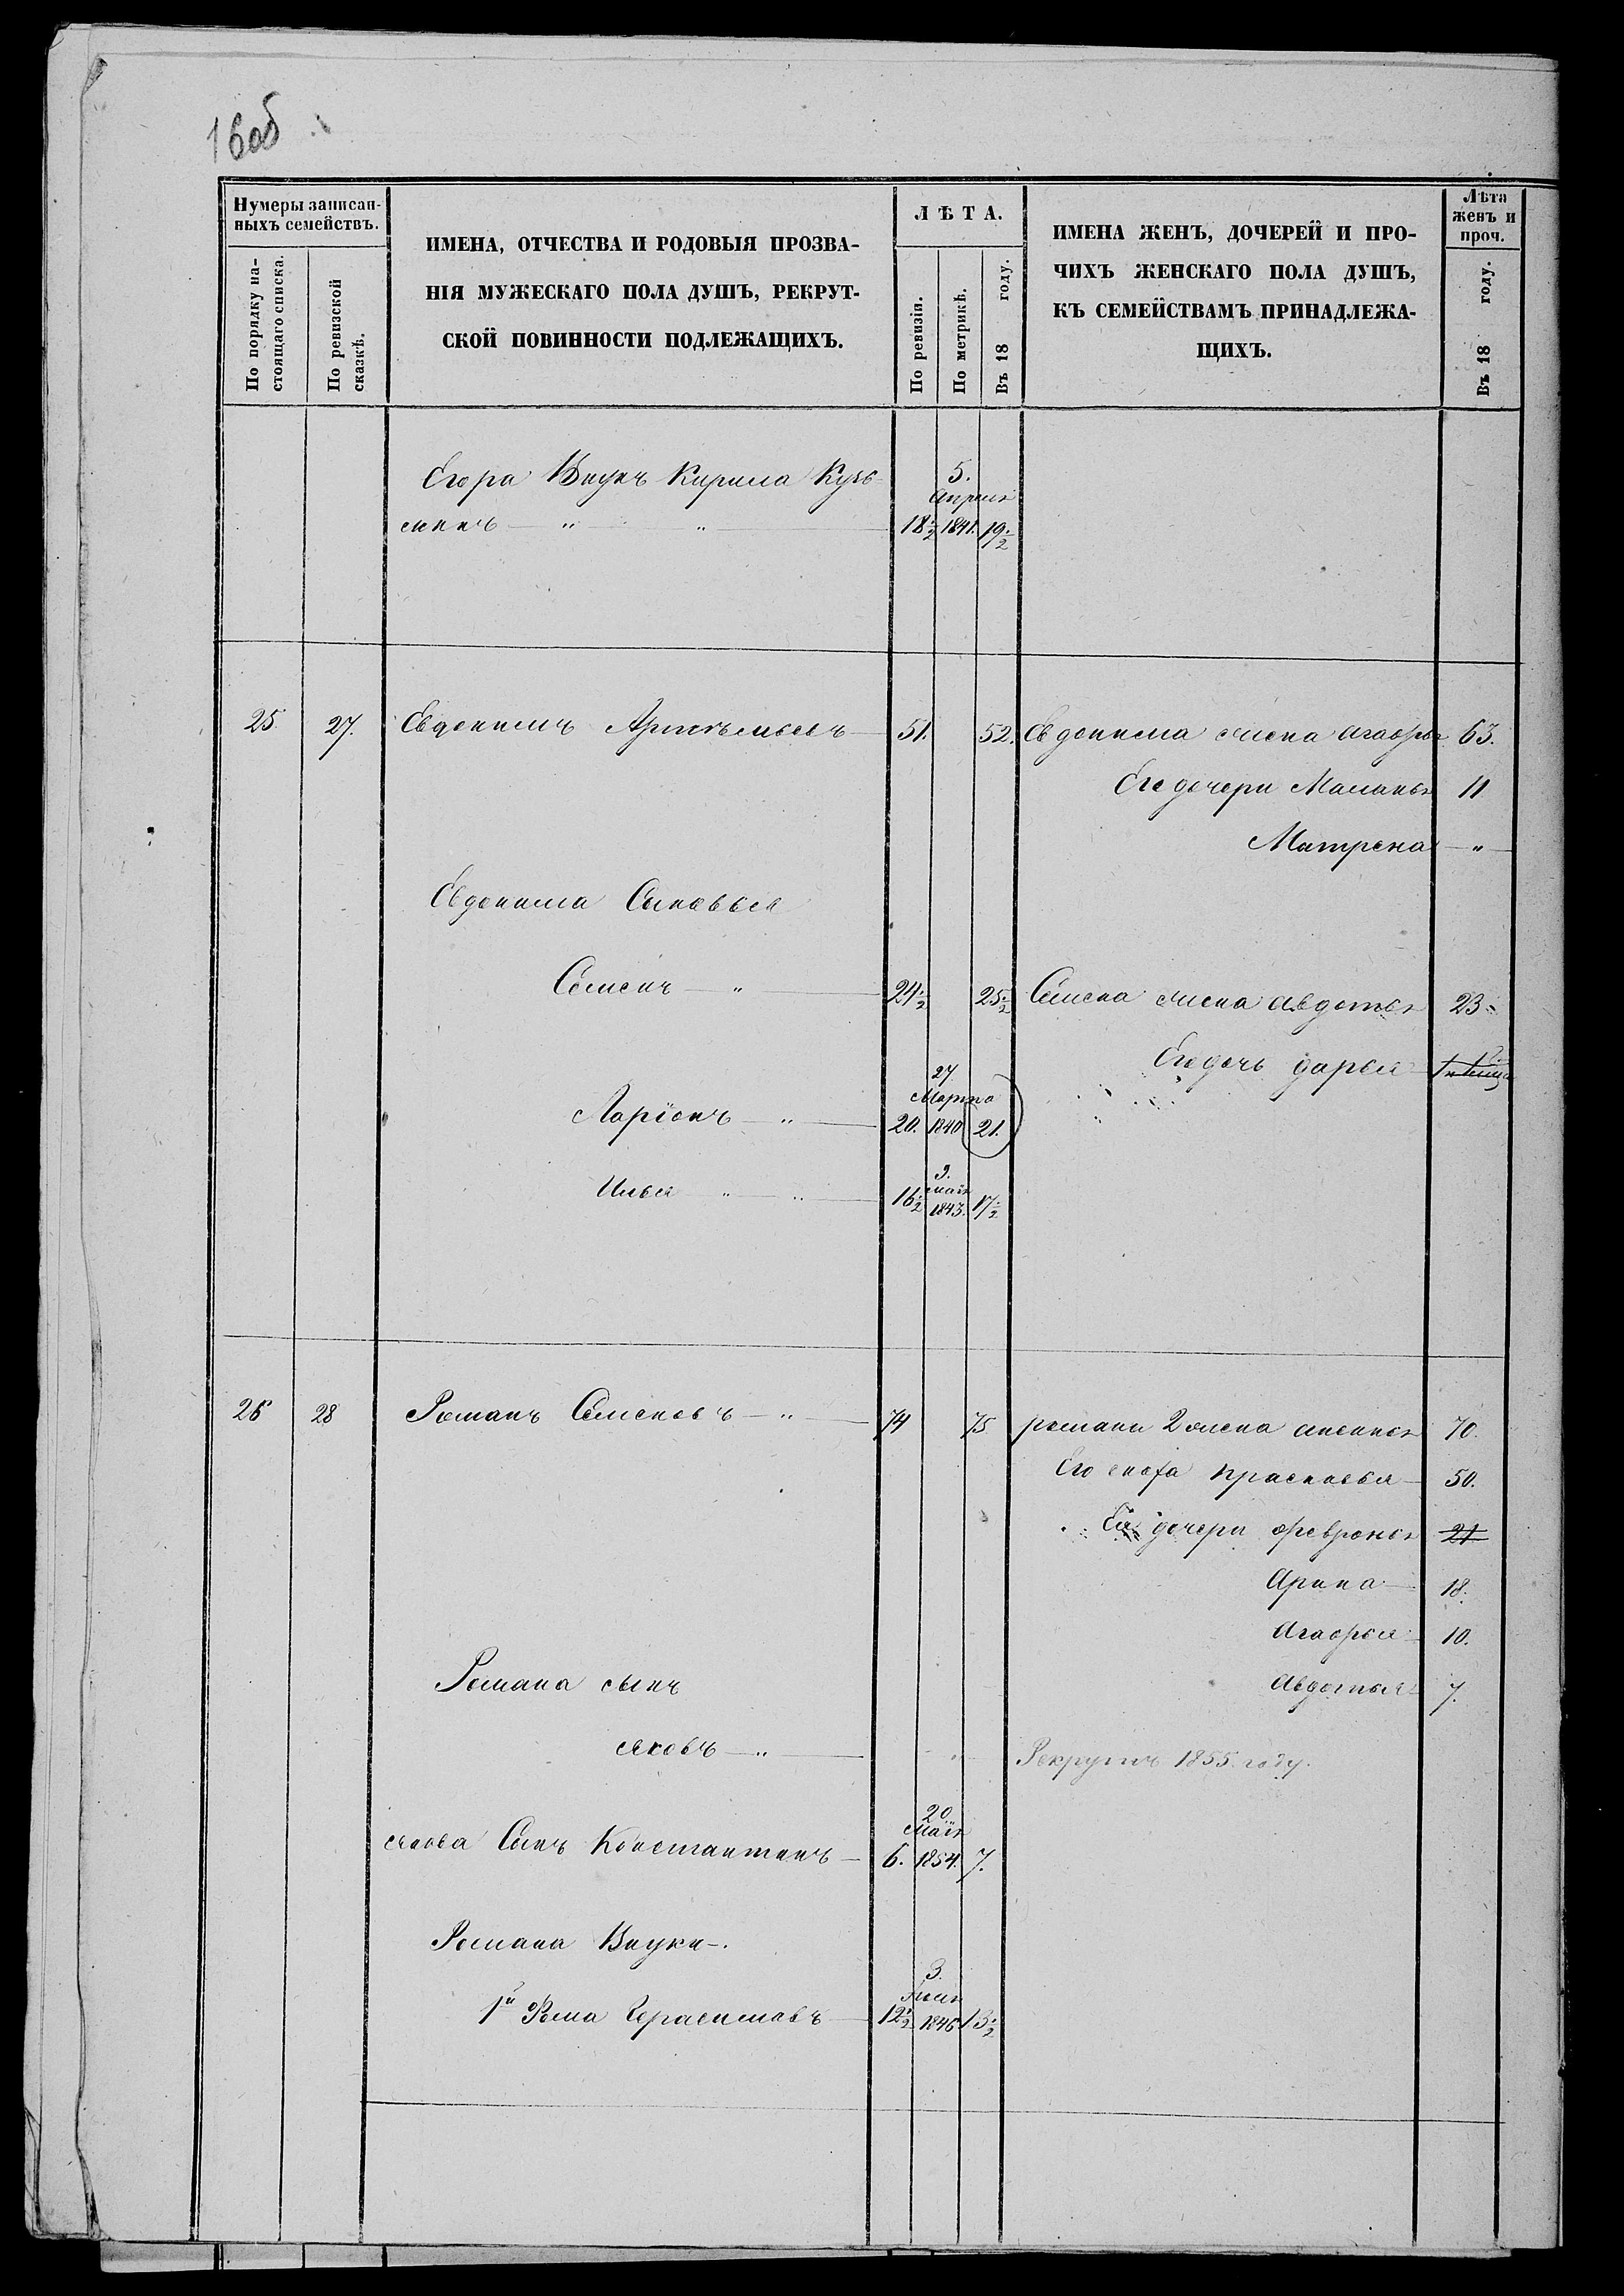 16об
Нумеры записан-
ныхъ семействъ.
По порядку на-
стоящаго списка.
По ревизской
сказкѣ.
ИМЕНА, ОТЧЕСТВА И РОДОВЫЯ ПРОЗВА-
НІЯ МУЖЕСКАГО ПОЛА ДУШЪ, РЕКРУТ-
СКОЙ ПОВИННОСТИ ПОДЛЕЖАЩИХЪ.
ЛѢТА.
По ревизіи.
По метрикѣ.
Въ 18 году.
ИМЕНА ЖЕНЪ, ДОЧЕРЕЙ И ПРО-
ЧИХЪ ЖЕНСКАГО ПОЛА ДУШЪ,
КЪ СЕМЕЙСТВАМЪ ПРИНАДЛЕЖА-
ЩИХЪ.
Лѣта
женъ и
проч.
Въ 18 году.
Егора Внукъ Кирила Кузь
5.
Апреля
минъ — " — " — 18½ 1841. 19½
25 27. Евдокимъ Артемьевъ — 51. 52. Евдокима жена Агафья 63.
Его дочери Маланья 11
Матрена — " —
Евдокима Сыновья
Семенъ — " — 24½ 25½ Семена жена Авдотья 23
Его дочь дарья
27
Марта
Ларіонъ — " — 20. 1840 21.
9.
маія
Илья " — " — 16½ 1843. 17½
26 28 Романъ Семеновъ — " — 74 75 романа 2 жена 70.
Его сноха прасковья — 50.
Ея дочери февронья 21
Арина — 18.
Агафья — 10.
Романа сынъ
Авдотья 7.
яковъ — " — Рекрутъ 1855 году.
20
Маія
якова Сынъ Константинъ — 6. 1854. 7.
Романа Внуки —.
3.
1й Фома Герасимовъ — 12½ 1846 13½